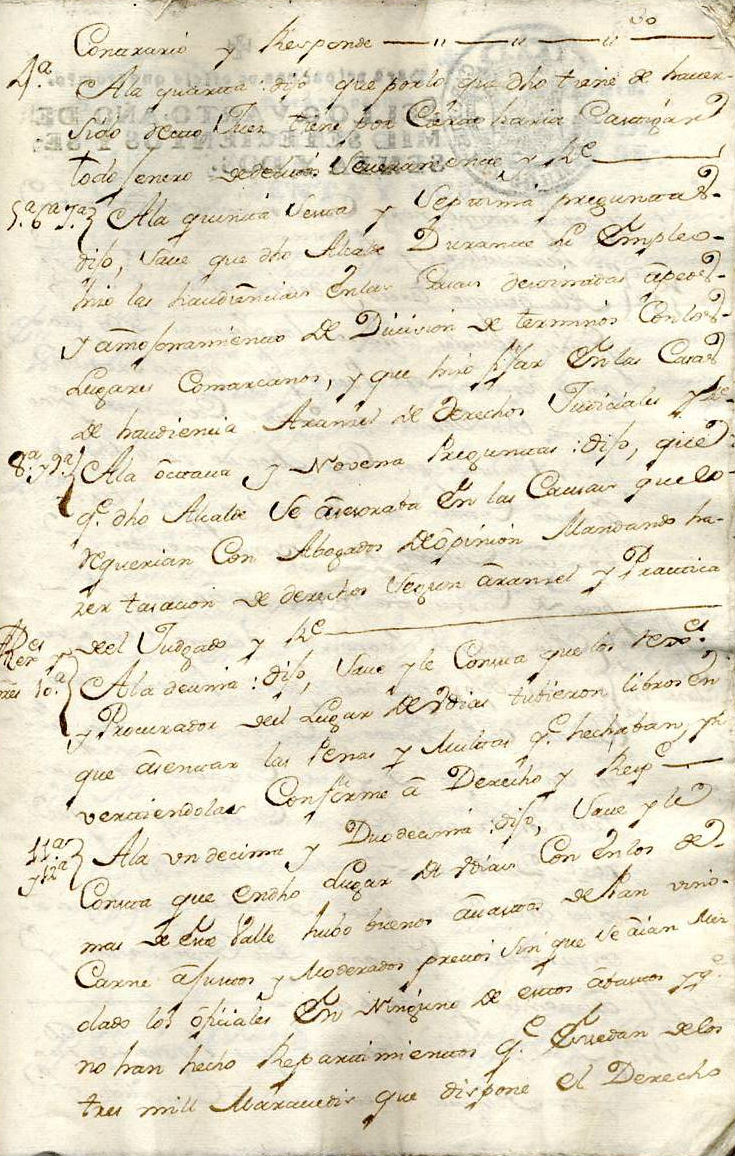 Contrario y Responde
4ª. Ala quarta: dijo que por lo que dho tiene de haver
sido dho Juez tiene por Cierto haria Castigar
todo genero de delitos Severamente y Rᵉ
5.ª 6ª 7.ª Ala quinta Sesta y Septima preguntas
dijo, Save que dho Alcalde Durante su Empleo
hizo las haudiencias en las Casas destinadas apeos
y amojonamientos de Dicision de terminos Con los
Lugares Comarcanos, y que hizo fijar En las Casas
de haudiencia Aranzel de derechos Judiciales y Rᵉ
8ª. y 9ª. Ala octava y Novena Preguntas: dijo, que
q.ᵉ dho Alcalde Se asesoraba En las Causas que lo
requerian Con Abogados de opinion Mandando ha
zer tasacion de derechos Segun aranzel y Practica
del Judgado y Rᵉ
10.ª Ala decima: dijo, Save y le Consta que los
y Procurador del Lugar de tubieron libros en
que asentar las Penas y Multas q.ᵉ hechaban,
virtiendolas Conforme a Derecho y Respᵉ
11ª y 12ª Ala undecima y Duodecima: dijo, Save y le
Consta que en dho Lugar de Con en los de
mas de Este Valle hubo buenos avastos de Pan vino
Carne a justos y Moderados precios sin que se aian
dado los oficiales En Ninguno de estos abastos y q.ᵉ
no han hecho Repartimientos q.ᵉ Excedan de los
tres mill Maravedis que dispone el Derecho